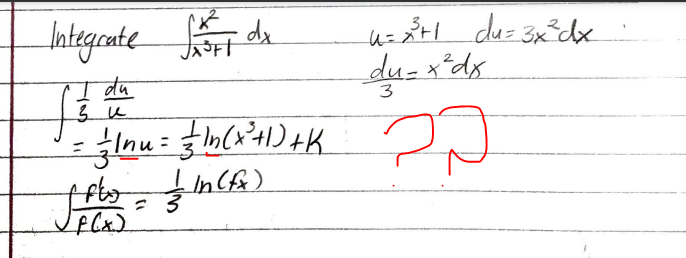 Integrate ∫ x²/(x³+1) dx    u = x³+1    du = 3x²dx
du/3 = x²dx
∫ 1/3 du/u
= 1/3 lnu = 1/3 ln(x³+1) + K
∫ f'(x)/f(x) = 1/3 ln(fx)
??